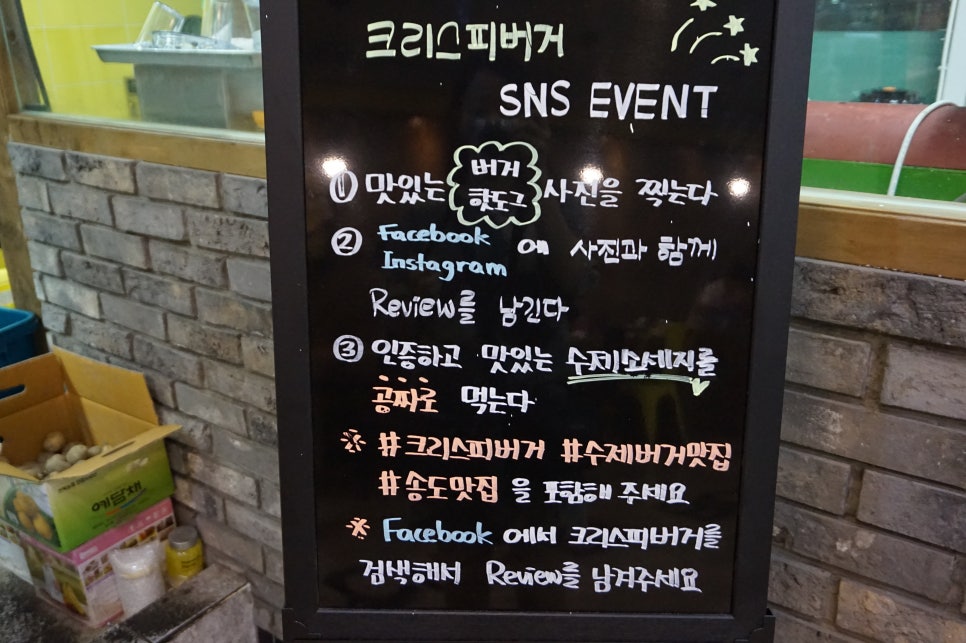 크리스피버거
SNS EVENT
① 맛있는 버거 핫도그 사진을 찍는다
② Facebook Instagram 에 사진과 함께
Review를 남긴다
③ 인증하고 맛있는 수제소세지를
공짜로 먹는다
※ #크리스피버거 #수제버거맛집
#송도맛집 을 포함해 주세요
※ Facebook 에서 크리스피버거를
검색해서 Review를 남겨주세요
예담채